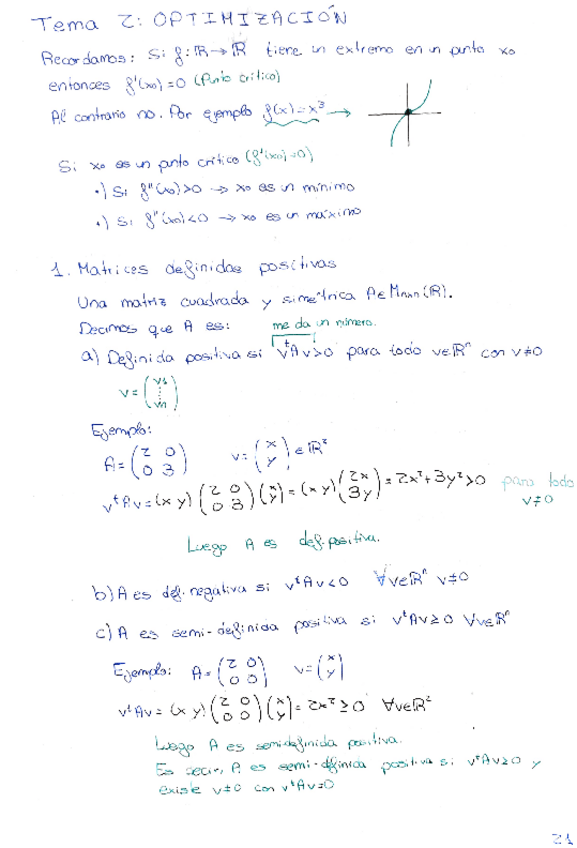 Tema 2: OPTIMIZACIÓN
Recordamos: Si f: ℝ→ℝ tiene un extremo en un punto x₀
entonces f'(x₀)=0 (Punto crítico)
Al contrario no. Por ejemplo f(x)=x³ →
Si x₀ es un punto crítico (f'(x₀)=0)
·) Si f''(x₀)>0 → x₀ es un mínimo
·) Si f''(x₀)<0 → x₀ es un máximo
1. Matrices definidas positivas
Una matriz cuadrada y simétrica A∈Mnxn(ℝ).
Decimos que A es: me da un número.
a) Definida positiva si vᵗAv>0 para todo v∈ℝⁿ con v≠0
v=(v₁ ⋮ vn)
Ejemplo:
A=(2 0; 0 3) v=(x; y)∈ℝ²
vᵗAv=(x y)(2 0; 0 3)(x; y)=(x y)(2x; 3y)=2x²+3y²>0 para todo
v≠0
Luego A es def. positiva.
b) A es def. negativa si vᵗAv<0 ∀v∈ℝⁿ v≠0
c) A es semi-definida positiva si vᵗAv≥0 ∀v∈ℝⁿ
Ejemplo: A=(2 0; 0 0) v=(x; y)
vᵗAv=(x y)(2 0; 0 0)(x; y)=2x²≥0 ∀v∈ℝ²
Luego A es semidefinida positiva.
Es decir, A es semi-definida positiva si vᵗAv≥0 y
existe v≠0 con vᵗAv=0
21